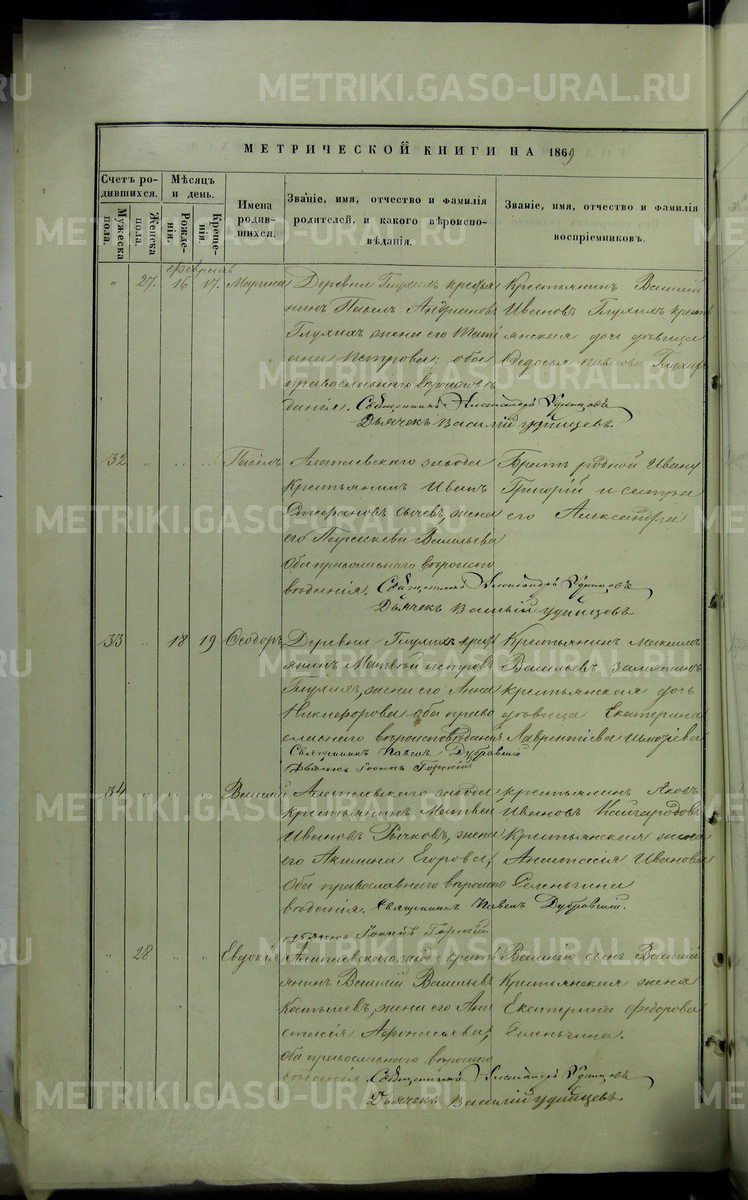 METRIKI.GASO-URAL.RU
МЕТРИЧЕСКОЙ КНИГИ НА 1869
Счетъ ро-
дившихся.
Мужеска
пола.
Женска
пола.
Мѣсяцъ
и день.
Рожде-
нія.
Креще-
нія.
Имена
родив-
шихся.
Званіе, имя, отчество и фамилія
родителей, и какого вѣроиспо-
вѣданія.
Званіе, имя, отчество и фамилія
воспріемниковъ.
Февраль
" 27. 16 17. Марина
Деревни Глухихъ крестья
нинъ Павелъ Андреяновъ
Глухихъ, жена его Тати
ана Петрова; оба
православнаго вѣроисповѣ
данія. Священникъ Александръ Удинцовъ
Дьячекъ Василій Удинцевъ
Крестьянинъ Василій
Ивановъ Глухихъ, крестъ
янская дочь дѣвица
Федосья Павлова Глухихъ
32 " " " Павелъ
Алапаевскаго завода
крестьянинъ Иванъ
Стефановъ Сычевъ, жена
его Парасковья Васильева
оба православнаго вѣроиспо
вѣданія. Священникъ Александръ Удинцовъ
Дьячекъ Василій Удинцевъ
Братъ родной Ивану
Григорій и сестра
его Александра
33 " 18 19 Ѳеодоръ
Деревни Глухихъ крест
янинъ Матвѣй Петровъ
Глухихъ, жена его Анна
Никифорова оба право
славнаго вѣроисповѣданія
Священникъ Павелъ Дубровскій
Дьячекъ Іоаннъ Горскій
Крестьянинъ Максимъ
Васильевъ Замятинъ
крестьянская дочь
дѣвица Екатерина
Лаврентіева
34 " " " Василій
Алапаевскаго завода
крестьянинъ Матвей
Ивановъ Рычковъ, жена
его Акилина Егорова,
оба православнаго вѣроиспо
вѣданія. Священникъ Павелъ Дубровскій.
Дьячекъ Іоаннъ Горскій
крестьянинъ Яковъ
Ивановъ Кайгородовъ
Крестьянская жена
Анастасія Иванова
Селеньгина
" 28 " " Евдокія
Алапаевскаго завода крест
янинъ Василій Васильевъ
Костылевъ, жена его Ана
стасія Афонасьева;
оба православнаго вѣроиспо
вѣданія Священникъ Александръ Удинцовъ
Дьячекъ Василій Удинцевъ
сынъ Василій
Крестьянская жена
Екатерина Федорова
Селеньгина.